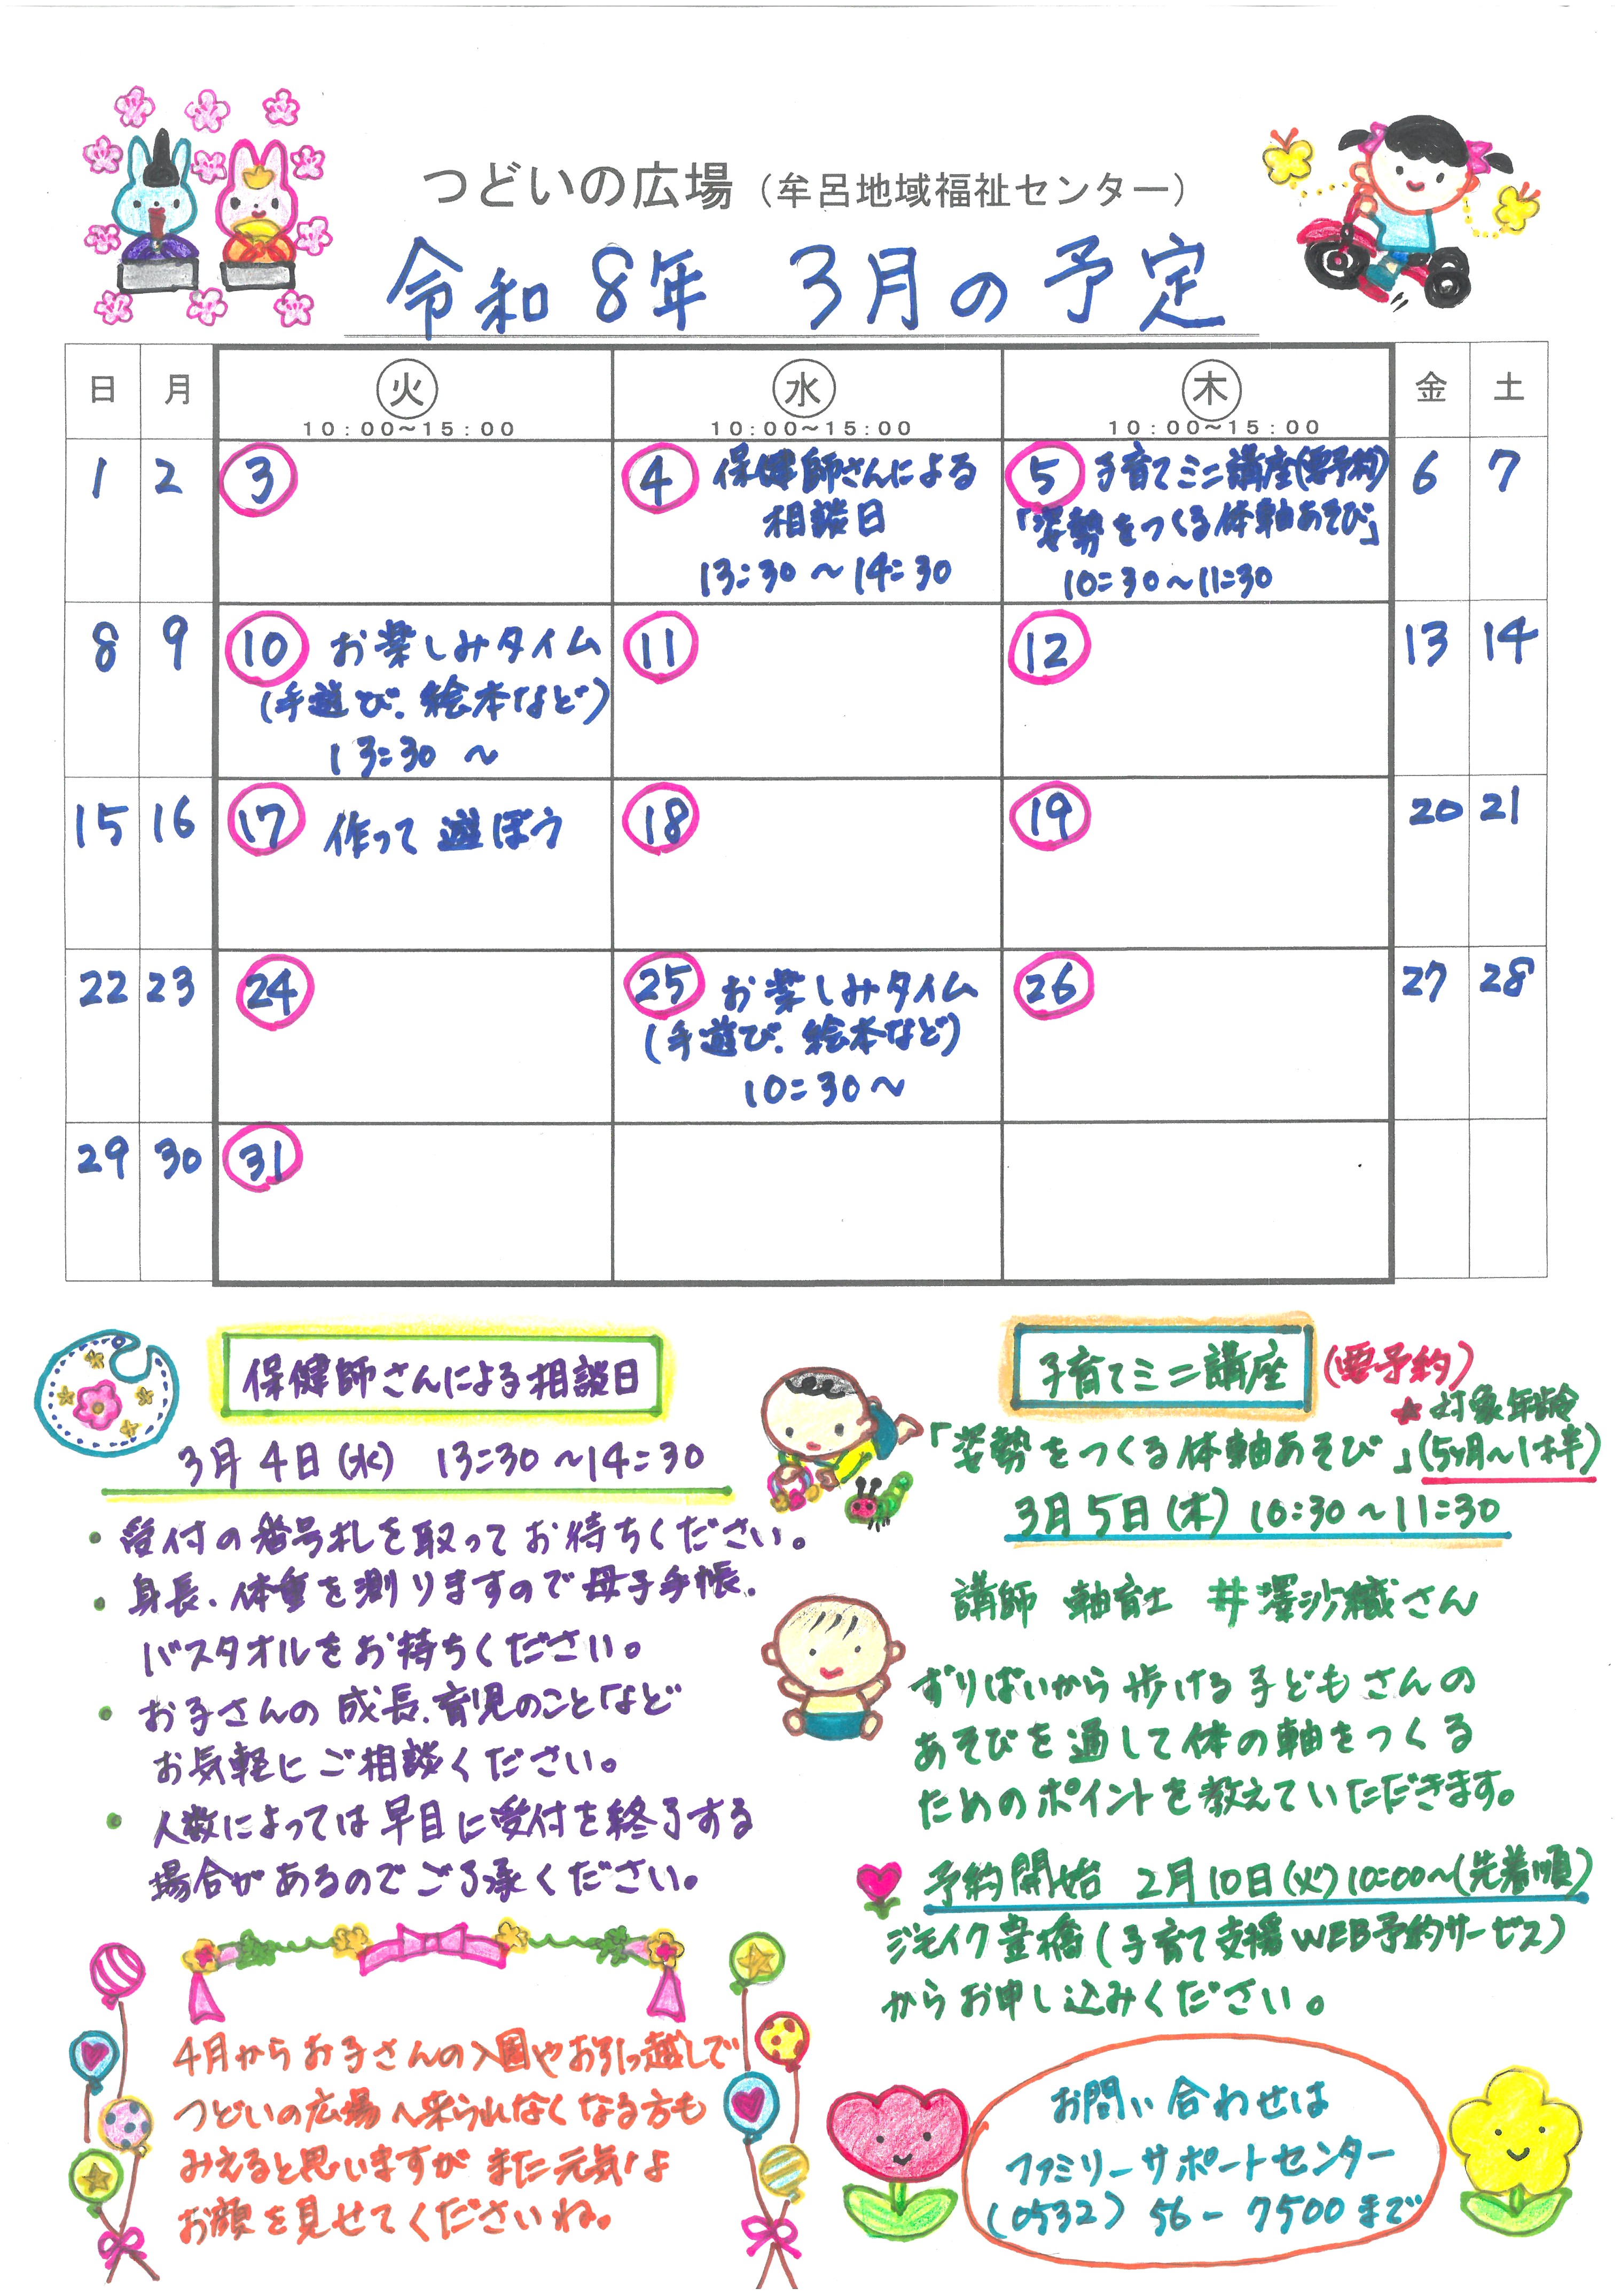 つどいの広場（牟呂地域福祉センター）
令和8年 3月の予定
日 月 火 水 木 金 土
10：00～15：00 10：00～15：00 10：00～15：00
1 2 3 4 保健師さんによる 5 子育てミニ講座(要予約) 6 7
相談日 「姿勢をつくる体軸あそび」
13:30～14:30 10:30～11:30
8 9 10 お楽しみタイム 11 12 13 14
(手遊び、絵本など)
13:30 ～
15 16 17 作って遊ぼう 18 19 20 21
22 23 24 25 お楽しみタイム 26 27 28
(手遊び、絵本など)
10:30～
29 30 31
保健師さんによる相談日
3月4日(水) 13:30～14:30
・受付の番号札を取ってお待ちください。
・身長、体重を測りますので母子手帳、
バスタオルをお持ちください。
・お子さんの成長、育児のことなど
お気軽にご相談ください。
・人数によっては早目に受付を終了する
場合があるのでご了承ください。
子育てミニ講座 (要予約)
★対象年齢
「姿勢をつくる体軸あそび」(5ヶ月～1才半)
3月5日(木) 10:30～11:30
講師 軸育士 井澤沙織さん
ずりばいから歩ける子どもさんの
あそびを通して体の軸をつくる
ためのポイントを教えていただきます。
予約開始 2月10日(火)10:00～(先着順)
ジモイク豊橋(子育て支援WEB予約サービス)
からお申し込みください。
4月からお子さんの入園やお引っ越しで
つどいの広場へ来られなくなる方も
みえると思いますがまた元気な
お顔を見せてくださいね。
お問い合わせは
ファミリーサポートセンター
(0532) 56-7500まで